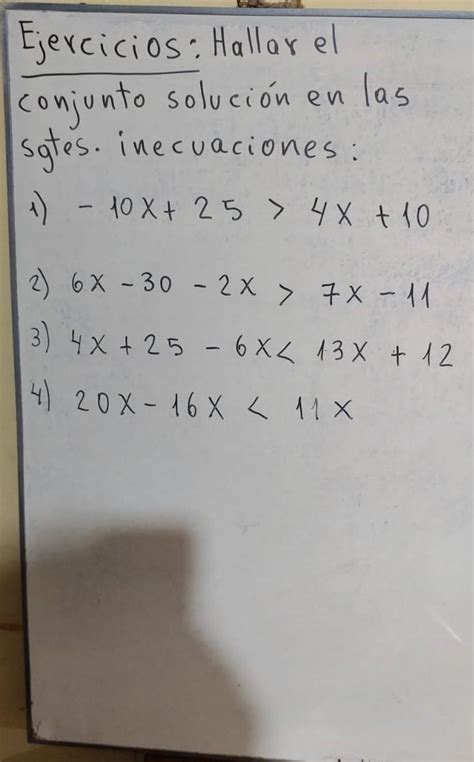 Ejercicios: Hallar el
conjunto solución en las
sgtes. inecuaciones:
1) - 10x + 25 > 4x + 10
2) 6x - 30 - 2x > 7x - 11
3) 4x + 25 - 6x < 13x + 12
4) 20x - 16x < 11x